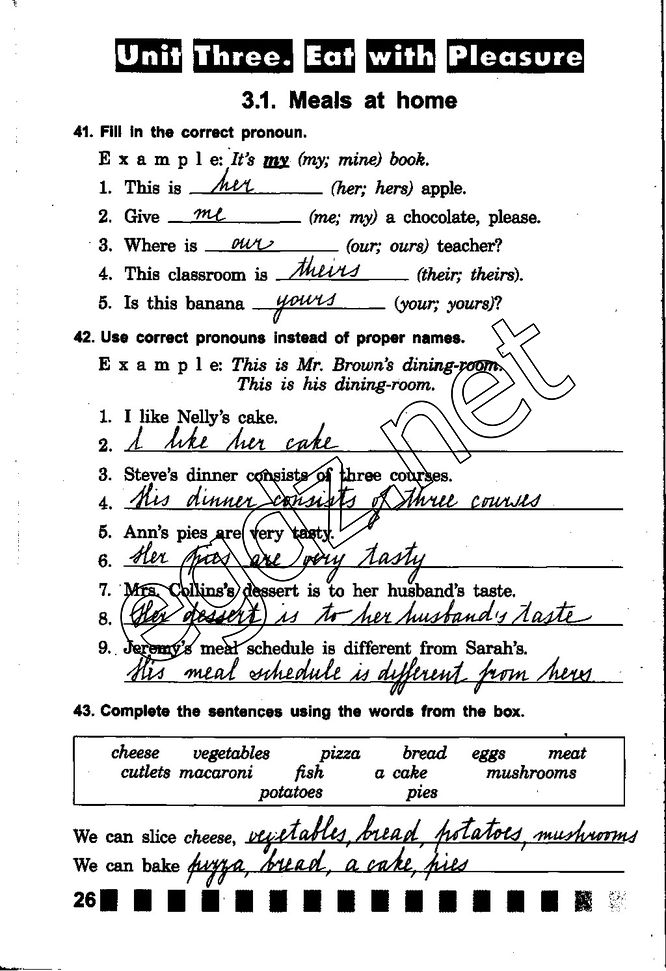 Unit Three. Eat with Pleasure
3.1. Meals at home
41. Fill in the correct pronoun.
E x a m p l e: It's my (my; mine) book.
1. This is her (her; hers) apple.
2. Give me (me; my) a chocolate, please.
3. Where is our (our; ours) teacher?
4. This classroom is theirs (their; theirs).
5. Is this banana yours (your; yours)?
42. Use correct pronouns instead of proper names.
E x a m p l e: This is Mr. Brown's dining-room.
This is his dining-room.
1. I like Nelly's cake.
2. I like her cake
3. Steve's dinner consists of three courses.
4. His dinner consists of three courses
5. Ann's pies are very tasty.
6. Her pies are very tasty
7. Mrs. Collins's dessert is to her husband's taste.
8. Her dessert is to her husband's taste
9. Jeremy's meal schedule is different from Sarah's.
His meal schedule is different from hers
43. Complete the sentences using the words from the box.
cheese vegetables pizza bread eggs meat
cutlets macaroni fish a cake mushrooms
potatoes pies
We can slice cheese, vegetables, bread, potatoes, mushrooms
We can bake pizza, bread, a cake, pies
26
egdz.net